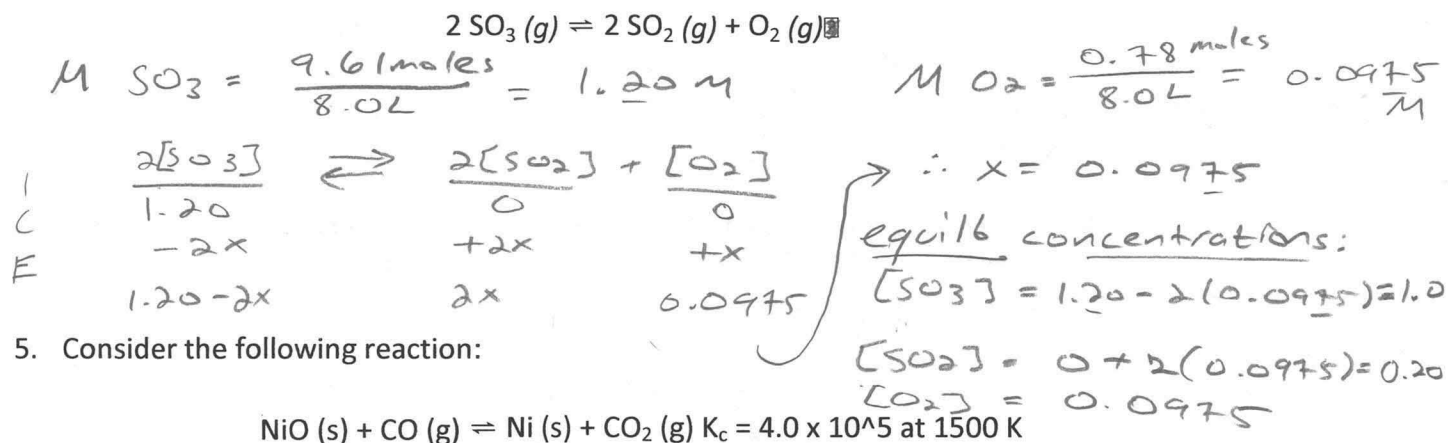 2 SO₃ (g) ⇌ 2 SO₂ (g) + O₂ (g)
M SO₃ = 9.61moles / 8.0L = 1.20 M
M O₂ = 0.78 moles / 8.0L = 0.0975 M
2[SO3] ⇌ 2[SO2] + [O2]
I 1.20 0 0
C -2x +2x +x
E 1.20-2x 2x 0.0975
∴ x = 0.0975
equilb concentrations:
[SO3] = 1.20-2(0.0975)=1.0
[SO2] = 0+2(0.0975)=0.20
[O2] = 0.0975
5. Consider the following reaction:
NiO (s) + CO (g) ⇌ Ni (s) + CO₂ (g) K_c = 4.0 x 10^5 at 1500 K